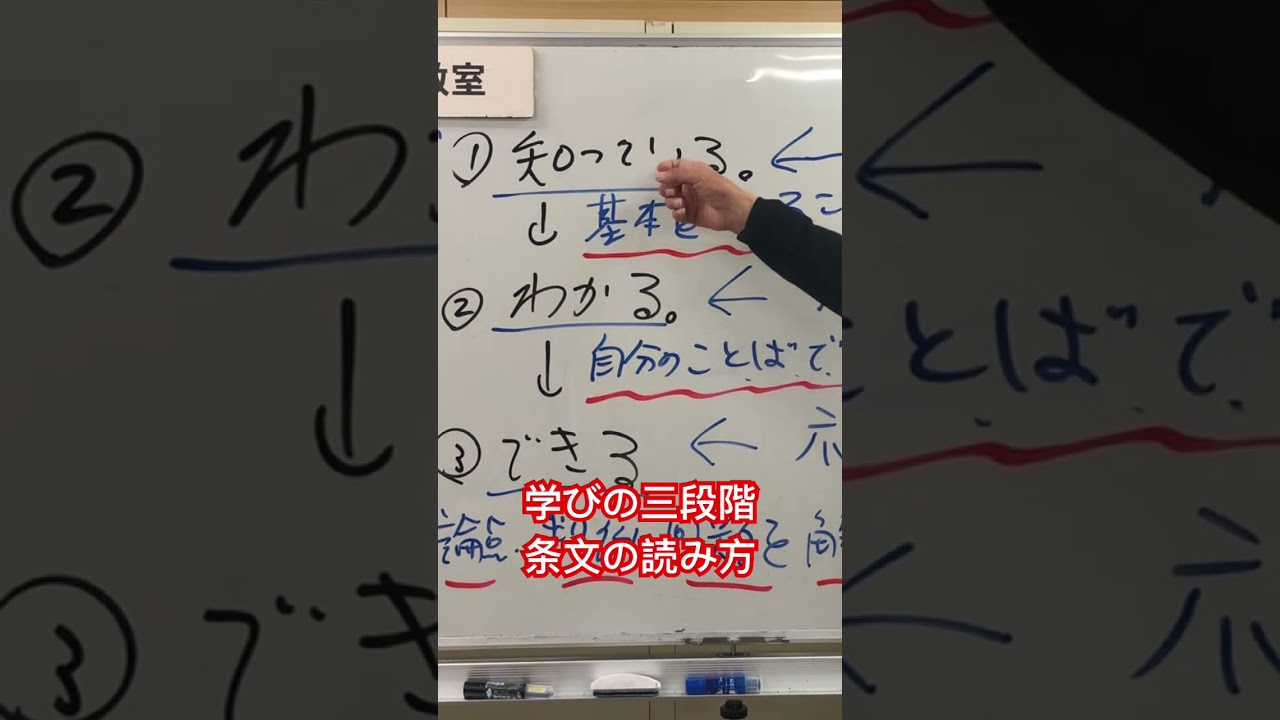 教室
① 知っている。←
↓ 基本を
② わかる。←
↓ 自分のことばで
③ できる ←
学びの三段階
論点 を
条文の読み方